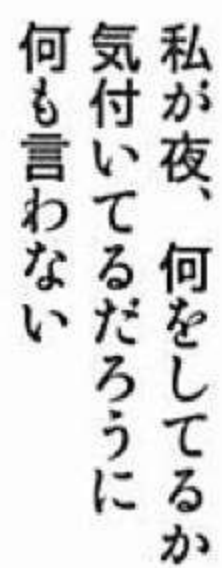 私が夜、何をしてるか
気付いてるだろうに
何も言わない